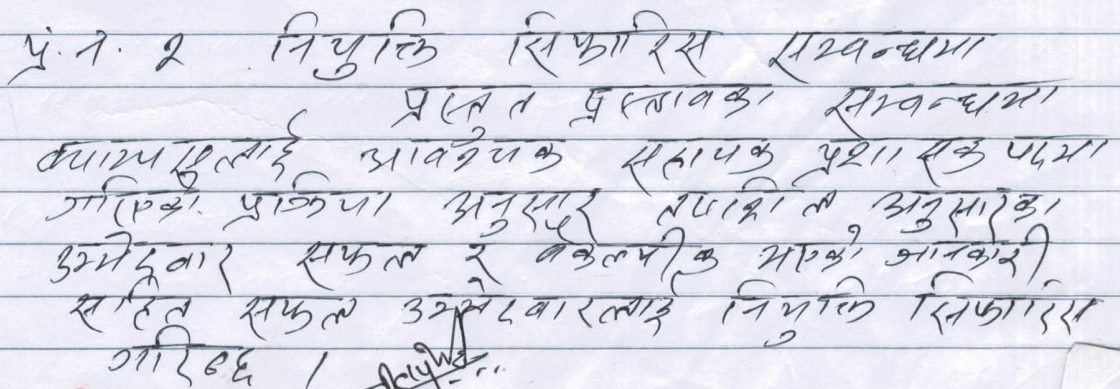 प्र.नं. २ नियुक्ति सिफारिस सम्बन्धमा
प्रस्तुत प्रस्तावका सम्बन्धमा
क्याम्पसलाई आवश्यक सहायक प्रशासक पदमा
गरिएको प्रक्रिया अनुसार तपशिल अनुसारका
उम्मेदवार सफल र वैकल्पीक भएको जानकारी
सहित सफल उम्मेदवारलाई नियुक्ति सिफारिस
गरिन्छ ।